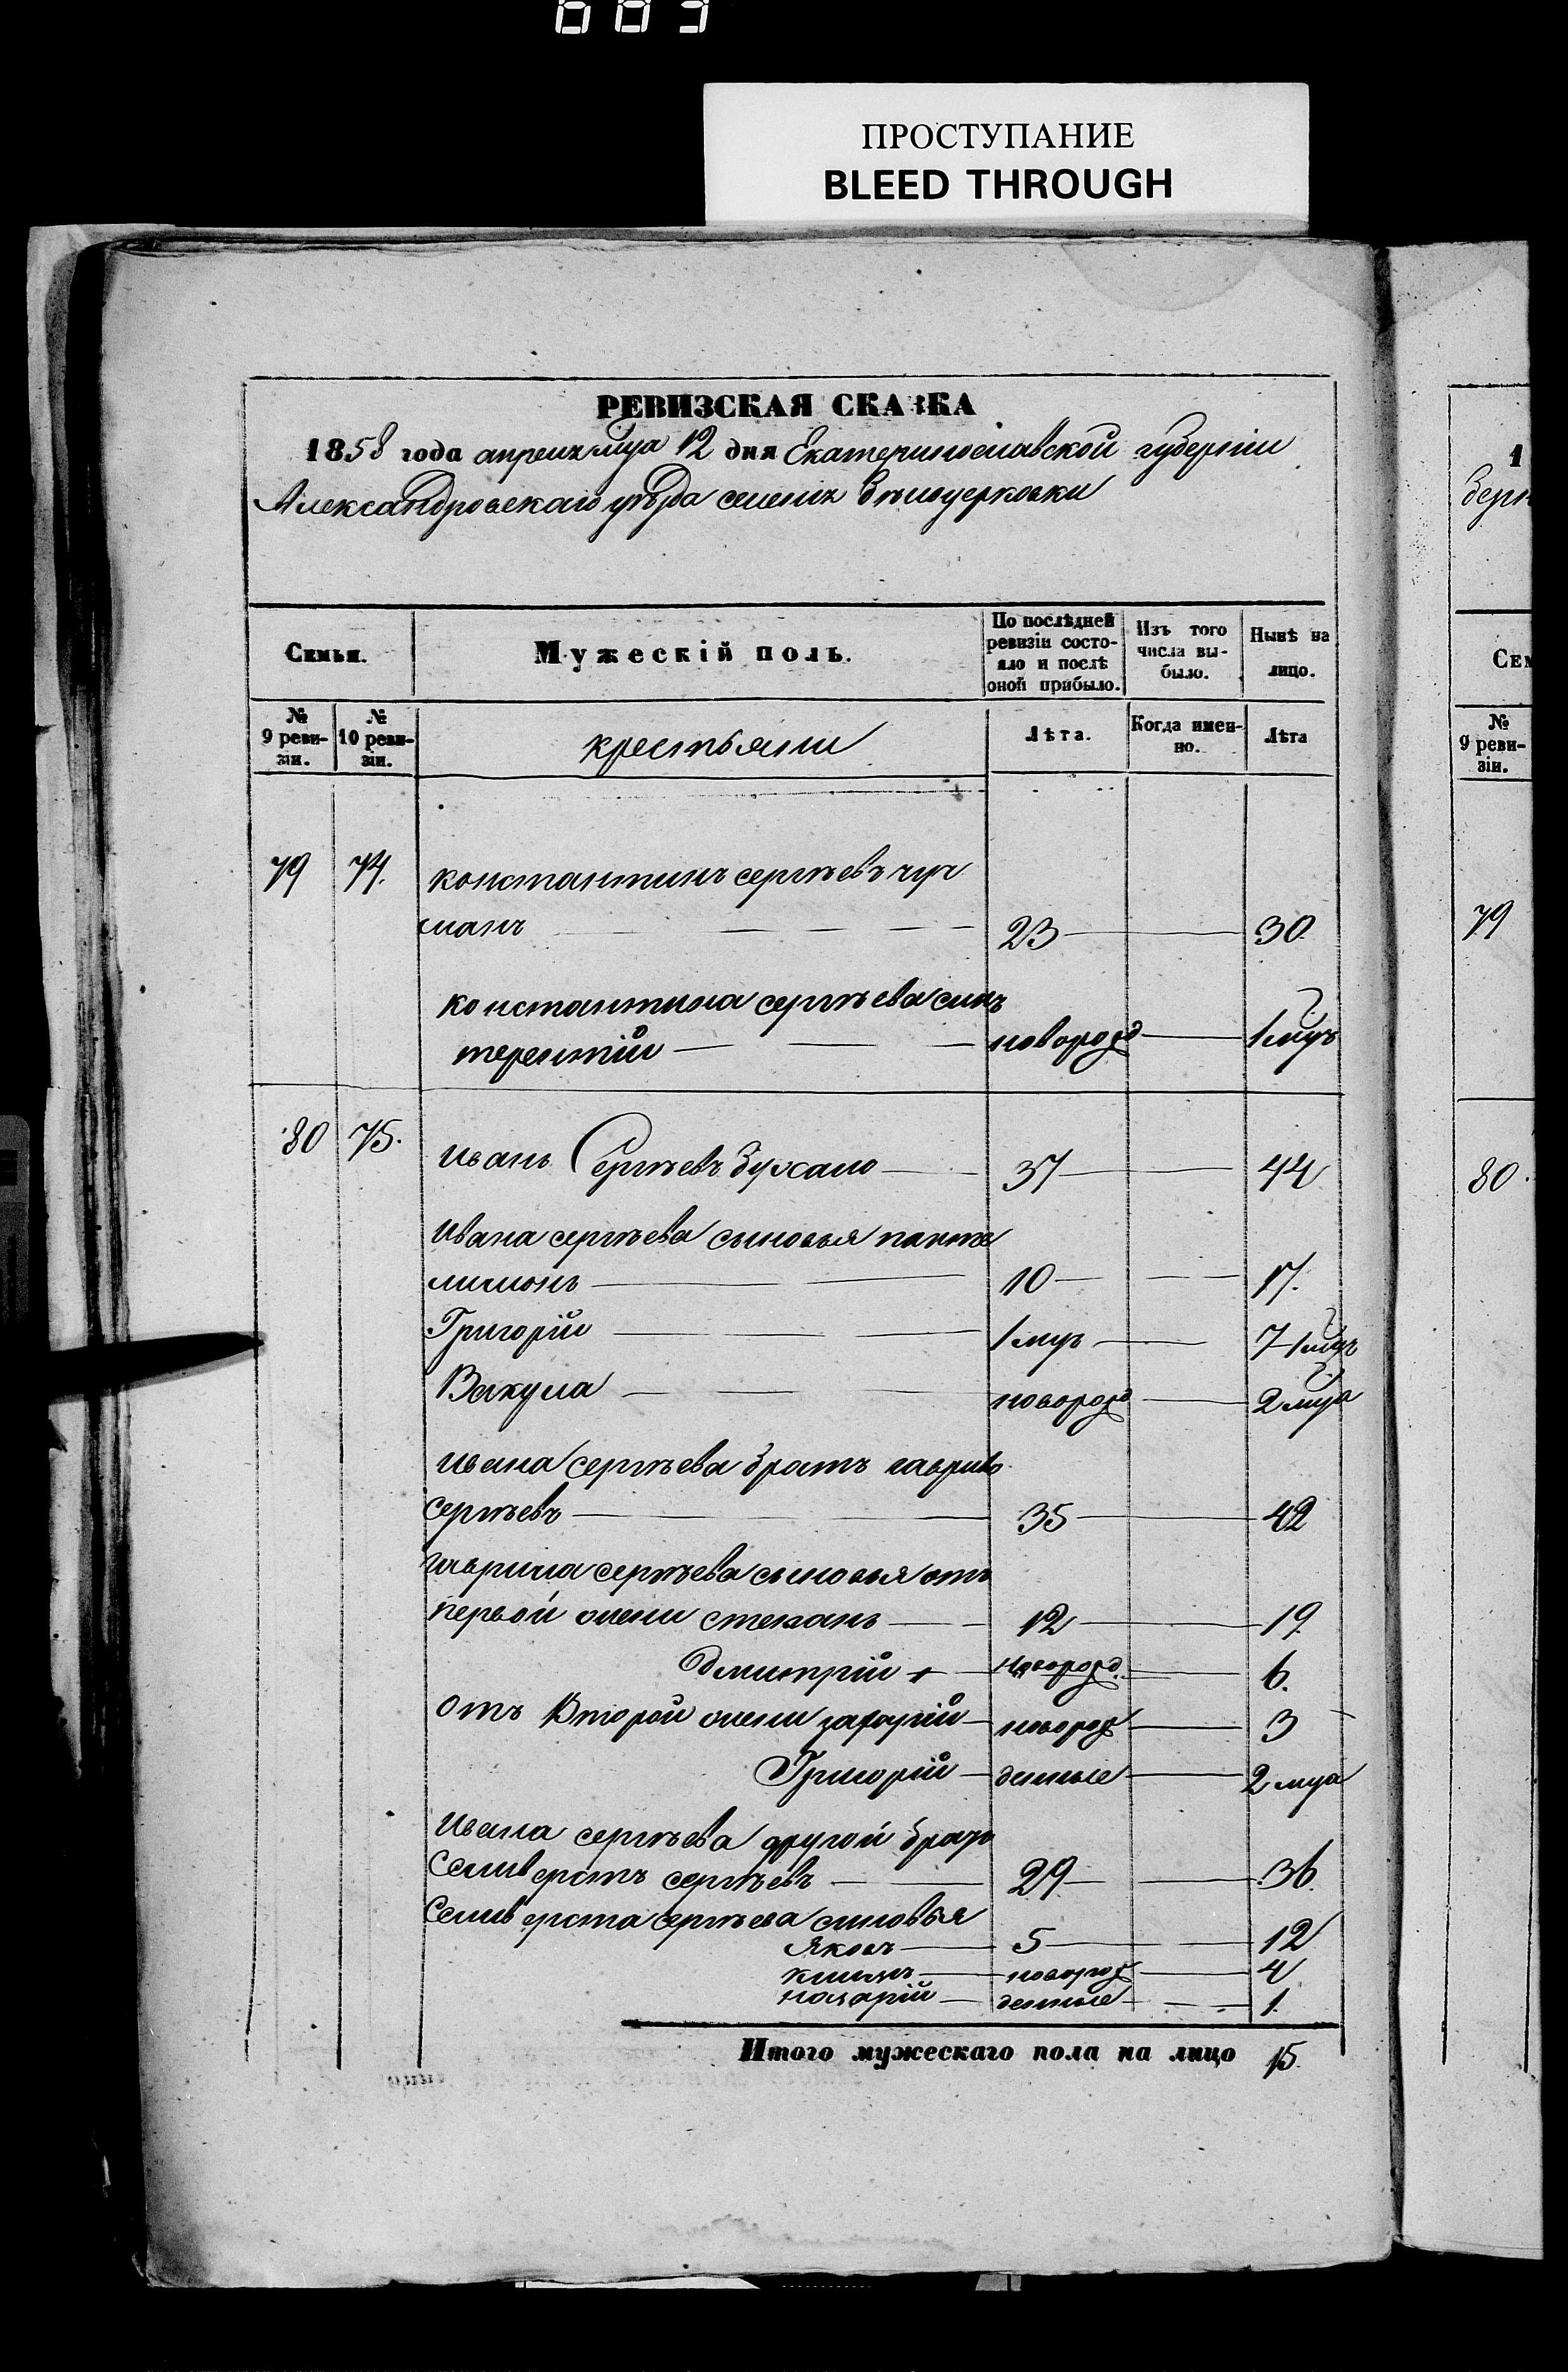 003
ПРОСТУПАНИЕ
BLEED THROUGH
РЕВИЗСКАЯ СКАЗКА
1858 года апреля мца 12 дня Екатеринославской губерніи
Александровскаго уѣзда селенія бѣлоцерковки
Семьи.
Мужескій полъ.
По послѣдней ревизіи состояло и послѣ оной прибыло.
Изъ того числа выбыло.
Нынѣ на лицо.
№ 9 ревизіи.
№ 10 ревизіи.
крестьяни
Лѣта.
Когда именно.
Лѣта
79 74. константинъ сергѣевъ
23 30
константина сергѣева синъ
терентій новорозд 1 мцъ
80 75. иванъ Сергѣевъ бухало 37 44
ивана сергѣева сыновья панте
лимонъ 10 17.
Григорій 1 мцъ 7-1 мцъ
Вакула новорозд 2 мца
ивана сергѣева братъ гаврило
сергѣевъ 35 42
гаврила сергѣева сыновья отъ
первой жени степанъ 12 19
дмитрій новорозд. 6.
отъ второй жени захарій новороз 3
Григорій денные 2 мца
ивана сергѣева другой братъ
Селиверстъ сергѣевъ 29 36.
Селиверста сергѣева синовья
яковъ 5 12
новороз 4
назарій денные 1.
Итого мужескаго пола на лицо 15.
1
берн
Сем
№
9 реви-
зіи.
79
80.